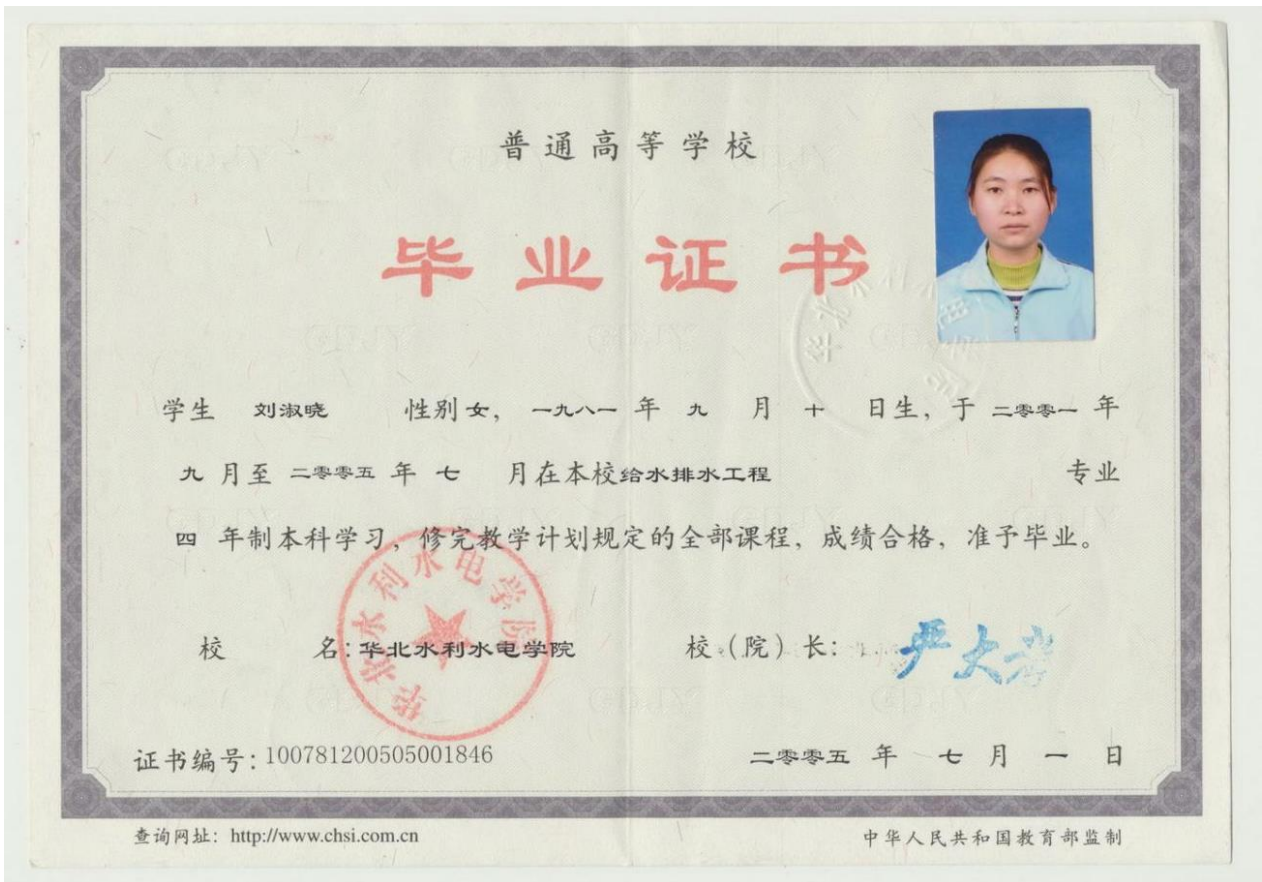 普通高等学校
毕业证书
学生 刘淑晓 性别女，一九八一年九月十日生，于二零零一年
九月至二零零五年七月在本校给水排水工程专业
四年制本科学习，修完教学计划规定的全部课程，成绩合格，准予毕业。
华北水利水电学院
校名：华北水利水电学院 校（院）长：严大考
证书编号：100781200505001846 二零零五年七月一日
查询网址：http://www.chsi.com.cn 中华人民共和国教育部监制